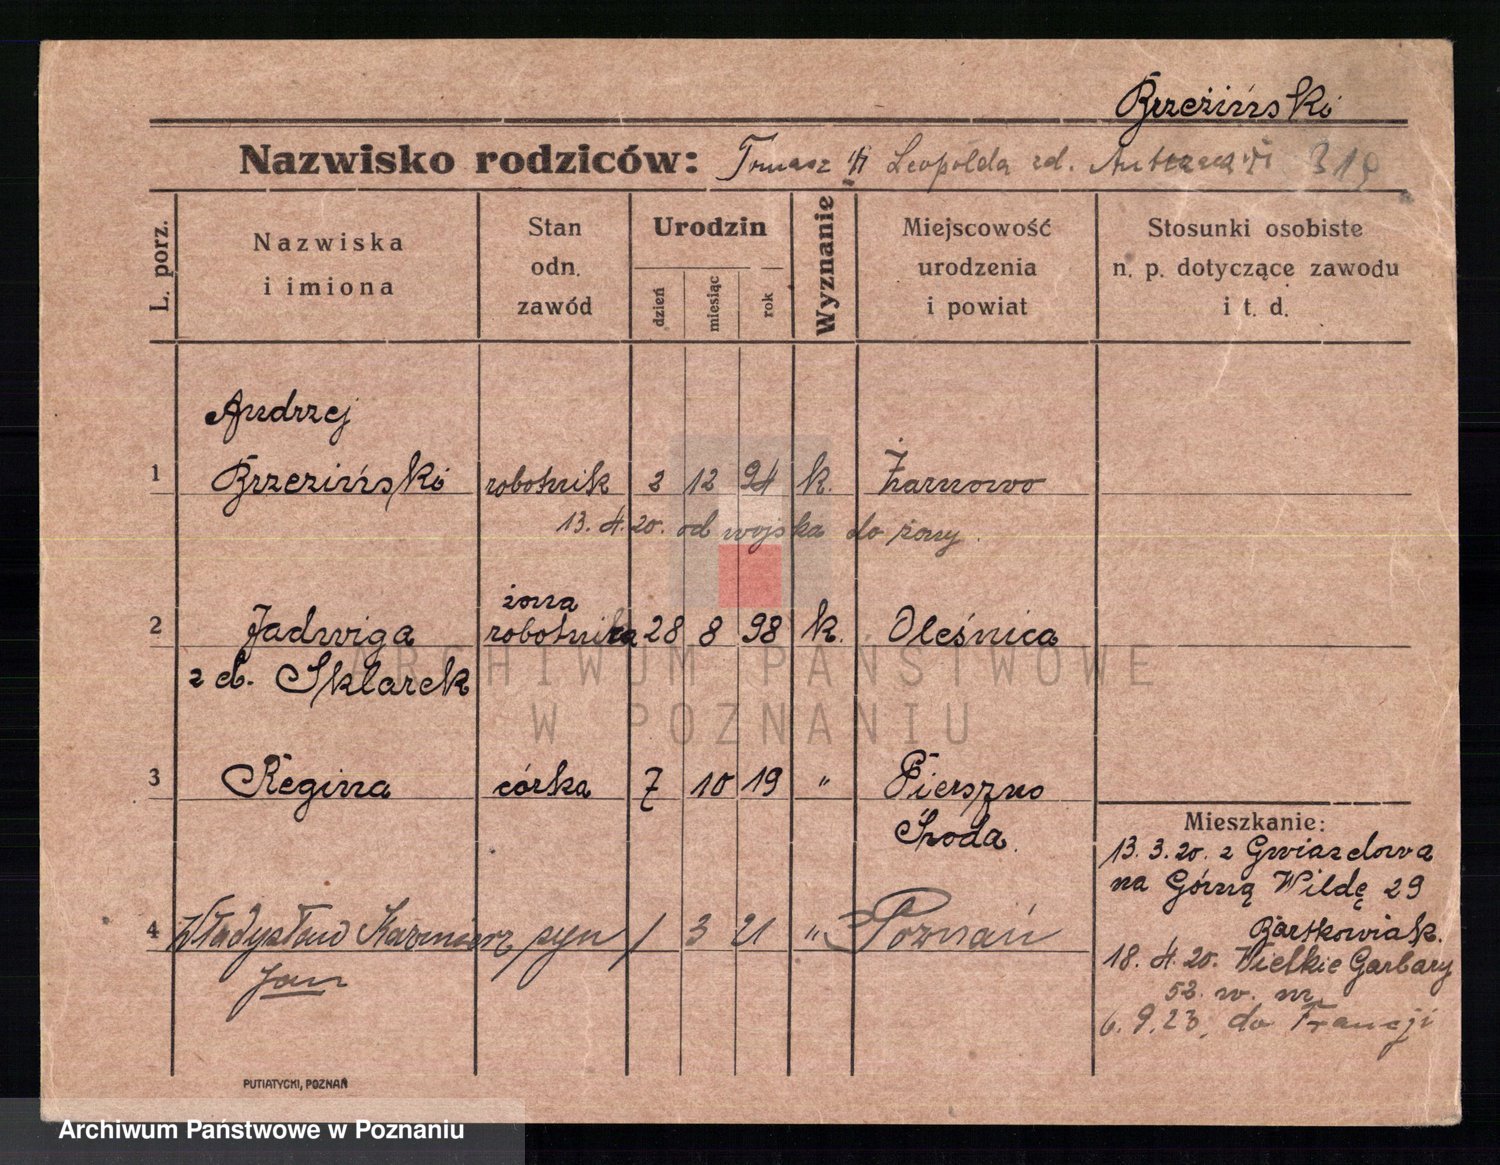 Brzeziński
Nazwisko rodziców: Tomasz i Leopolda zd.
L. porz.
Nazwiska
i imiona
Stan
odn.
zawód
Urodzin
dzień
miesiąc
rok
Wyznanie
Miejscowość
urodzenia
i powiat
Stosunki osobiste
n. p. dotyczące zawodu
i t. d.
Andrzej
1 Brzeziński robotnik 2 12 94 k. Żarnowo
13. 4. 20. od wojska do żony.
żona
2 Jadwiga robotnika 28 8 98 k. Oleśnica
z d. Sklarek
ARCHIWUM PAŃSTWOWE
W POZNANIU
3 Regina córka 7 10 19 " Pierszno
Środa.
4 Władysław Kazimierz syn 1 3 21 " Poznań
Jan
Mieszkanie:
13. 3. 20. z Gwiazdowa
na Górną Wildę 29
Bartkowiak.
18. 4. 20. Wielkie Garbary
52. w. m.
6. 9. 23. do Francji
PUTIATYCKI, POZNAŃ
Archiwum Państwowe w Poznaniu